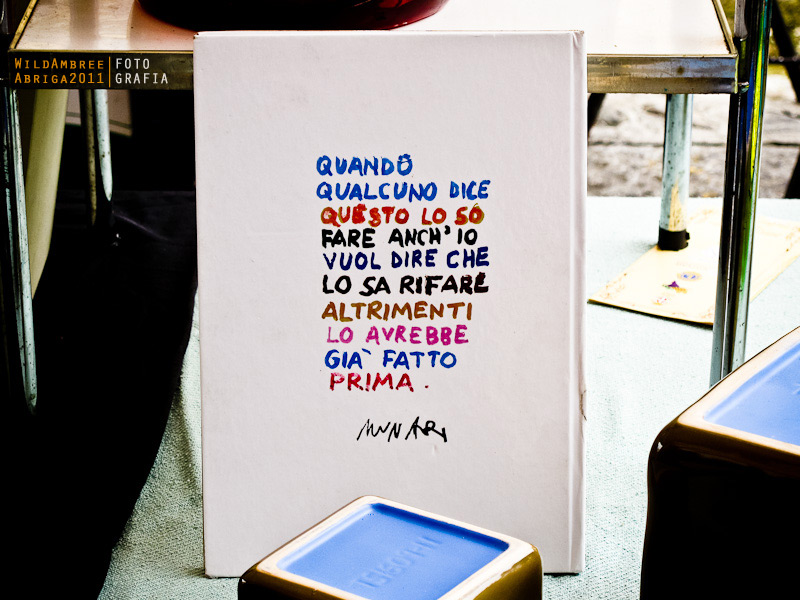 WILDAMBREE FOTO
ABRIGA2011 GRAFIA
QUANDO
QUALCUNO DICE
QUESTO LO SO
FARE ANCH'IO
VUOL DIRE CHE
LO SA RIFARE
ALTRIMENTI
LO AVREBBE
GIA' FATTO
PRIMA.
MUNARI